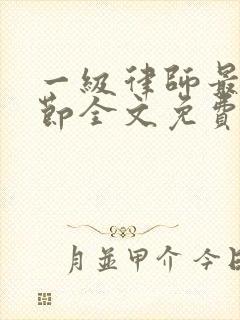 一級律師最
節全文免費
月並甲介 今日